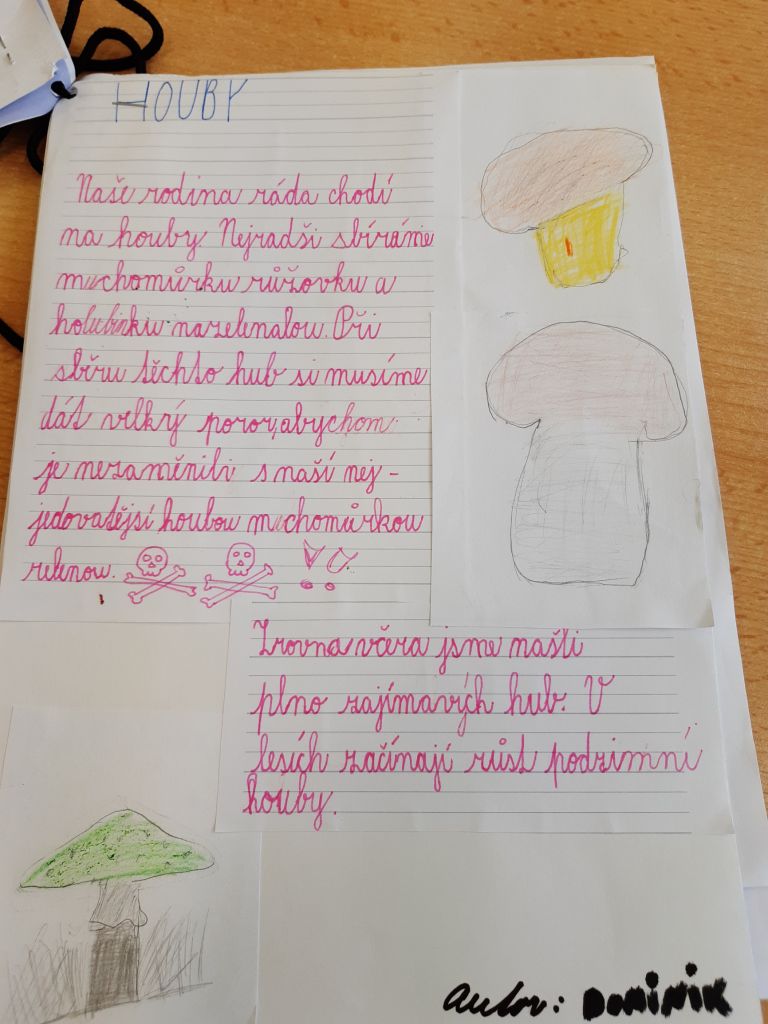 HOUBY
Naše rodina ráda chodí
na houby. Nejradši sbíráme
muchomůrku růžovku a
holubinku nazelenalou. Při
sběru těchto hub si musíme
dát velký pozor, abychom
je nezaměnili s naší nej-
jedovatější houbou muchomůrkou
zelenou.
Zrovna včera jsme našli
plno zajímavých hub. V
lesích začínají růst podzimní
houby.
Autor: DOMINIK